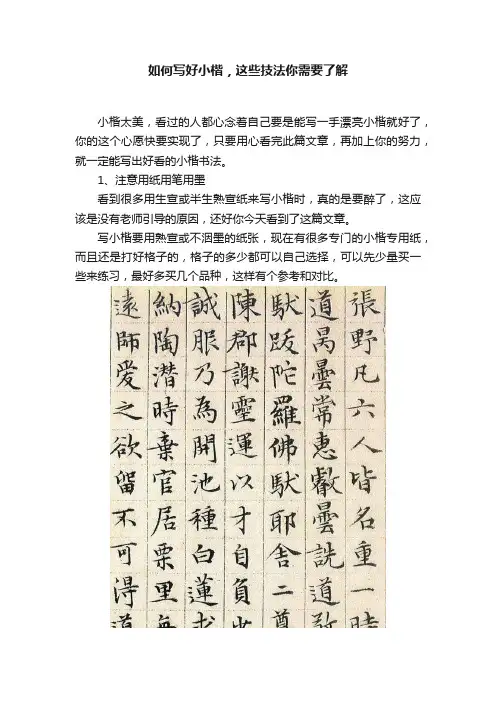 如何写好小楷，这些技法你需要了解
小楷太美，看过的人都心念着自己要是能写一手漂亮小楷就好了，
你的这个心愿快要实现了，只要用心看完此篇文章，再加上你的努力，
就一定能写出好看的小楷书法。
1、注意用纸用笔用墨
看到很多用生宣或半生熟宣纸来写小楷时，真的是要醉了，这应
该是没有老师引导的原因，还好你今天看到了这篇文章。
写小楷要用熟宣或不洇墨的纸张，现在有很多专门的小楷专用纸，
而且还是打好格子的，格子的多少都可以自己选择，可以先少量买一
些来练习，最好多买几个品种，这样有个参考和对比。
張野凡六人皆名重一時
道昺曇常惠叡曇詵道敬
馱跋陀羅佛馱耶舍二尊
陳郡謝靈運以才自負
誠服乃為開池種白蓮求
納陶潛時棄官居栗里
遠師愛之欲留不可得道